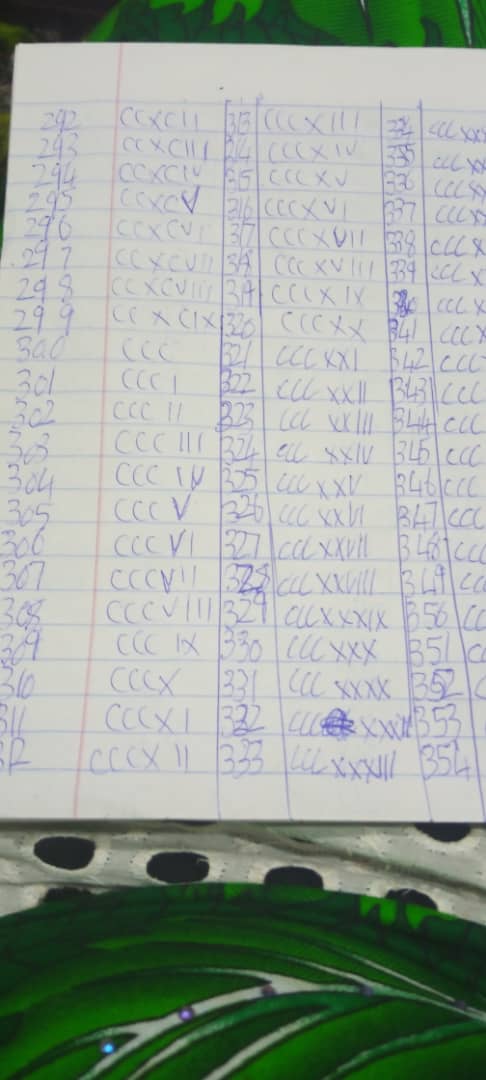 292 CCXCII 313 CCCXIII 334 CCCXXX
293 CCXCIII 314 CCCXIV 335 CCCXX
294 CCXCIV 315 CCCXV 336 CCCXX
295 CCXCV 316 CCCXVI 337 CCCXX
296 CCXCVI 317 CCCXVII 338 CCCX
297 CCXCVII 318 CCCXVIII 339 CCCX
298 CCXCVIII 319 CCCXIX CCCX
299 CCXCIX 320 CCCXX 341 CCCX
300 CCC 321 CCCXXI 342 CCC
301 CCCI 322 CCCXXII 343 CCC
302 CCCII 323 CCCXXIII 344 CCC
303 CCCIII 324 CCCXXIV 345 CCC
304 CCCIV 325 CCCXXV 346 CCC
305 CCCV 326 CCCXXVI 347 CCC
306 CCCVI 327 CCCXXVII 348 CCC
307 CCCVII 328 CCCXXVIII 349 CCC
308 CCCVIII 329 CCCXXXIX 350 CC
309 CCCIX 330 CCCXXX 351 C
310 CCCX 331 CCCXXXX 352 C
311 CCCXI 332 CCC 353
312 CCCXII 333 CCCXXXIII 354